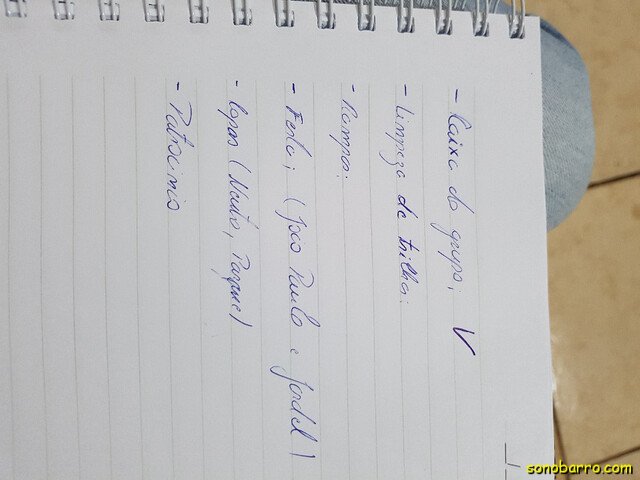 - Caixa do grupo; V
- Limpeza de trilha:
- Rampa:
- Festa; (João Paulo e Jordel)
- Copos (Neuto, Parque)
- Patrocinio
sonobarro.com